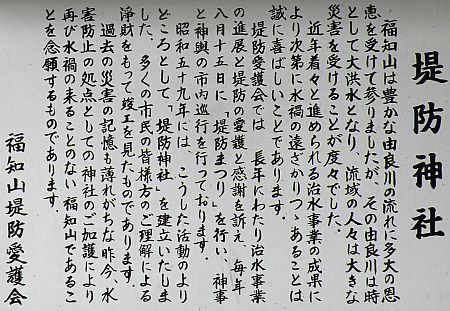 堤防神社
福知山は豊かな由良川の流れに多大の恩
恵を受けて参りましたが、その由良川は時
として大洪水となり、流域の人々は大きな
災害を受けることが度々でした。
近年着々と進められる治水事業の成果に
より次第に水禍の遠ざかりつゝあることは
誠に喜ばしいことであります。
堤防愛護会では 長年にわたり治水事業
の進展と堤防の愛護と感謝を訴え、毎年
八月十五日に、「堤防まつり」を行い、神事
と神輿の市内巡行を行っております。
昭和五十九年には、こうした活動のより
どころとして、「堤防神社」を建立いたしま
した、多くの市民の皆様方のご理解による
浄財をもって竣工を見たものであります。
過去の災害の記憶も薄れがちな昨今、水
害防止の処点としての神社のご加護により
再び水禍の来ることのない福知山であるこ
とを念願するものであります。
福知山堤防愛護会